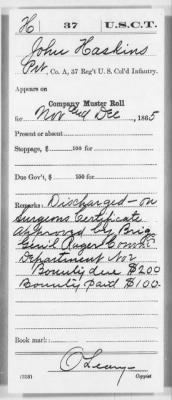 H | 37 | U.S.C.T.
John Haskins
Pvt., Co. A, 37 Reg't U. S. Col'd Infantry.
Appears on
Company Muster Roll
for Nov and Dec, 1865
Present or absent
Stoppage, $ 100 for
Due Gov't, $ 100 for
Remarks: Discharged - on
Surgeons Certificate
Approved by Brig
Genl Ruger Com'd'g
Department No
Bounty due $200
Bounty paid $100.
Book mark:
O'Leary
(858) Copyist